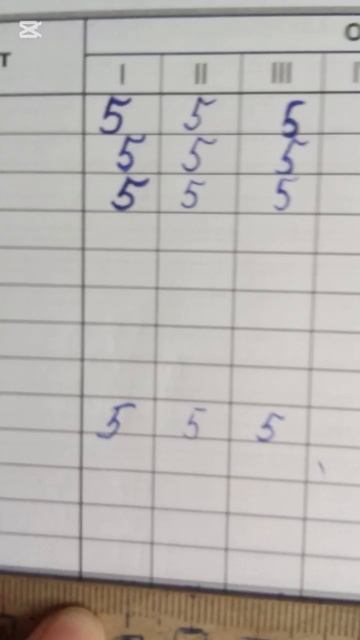 Т
О
I II III
5 5 5
5 5 5
5 5 5
5 5 5